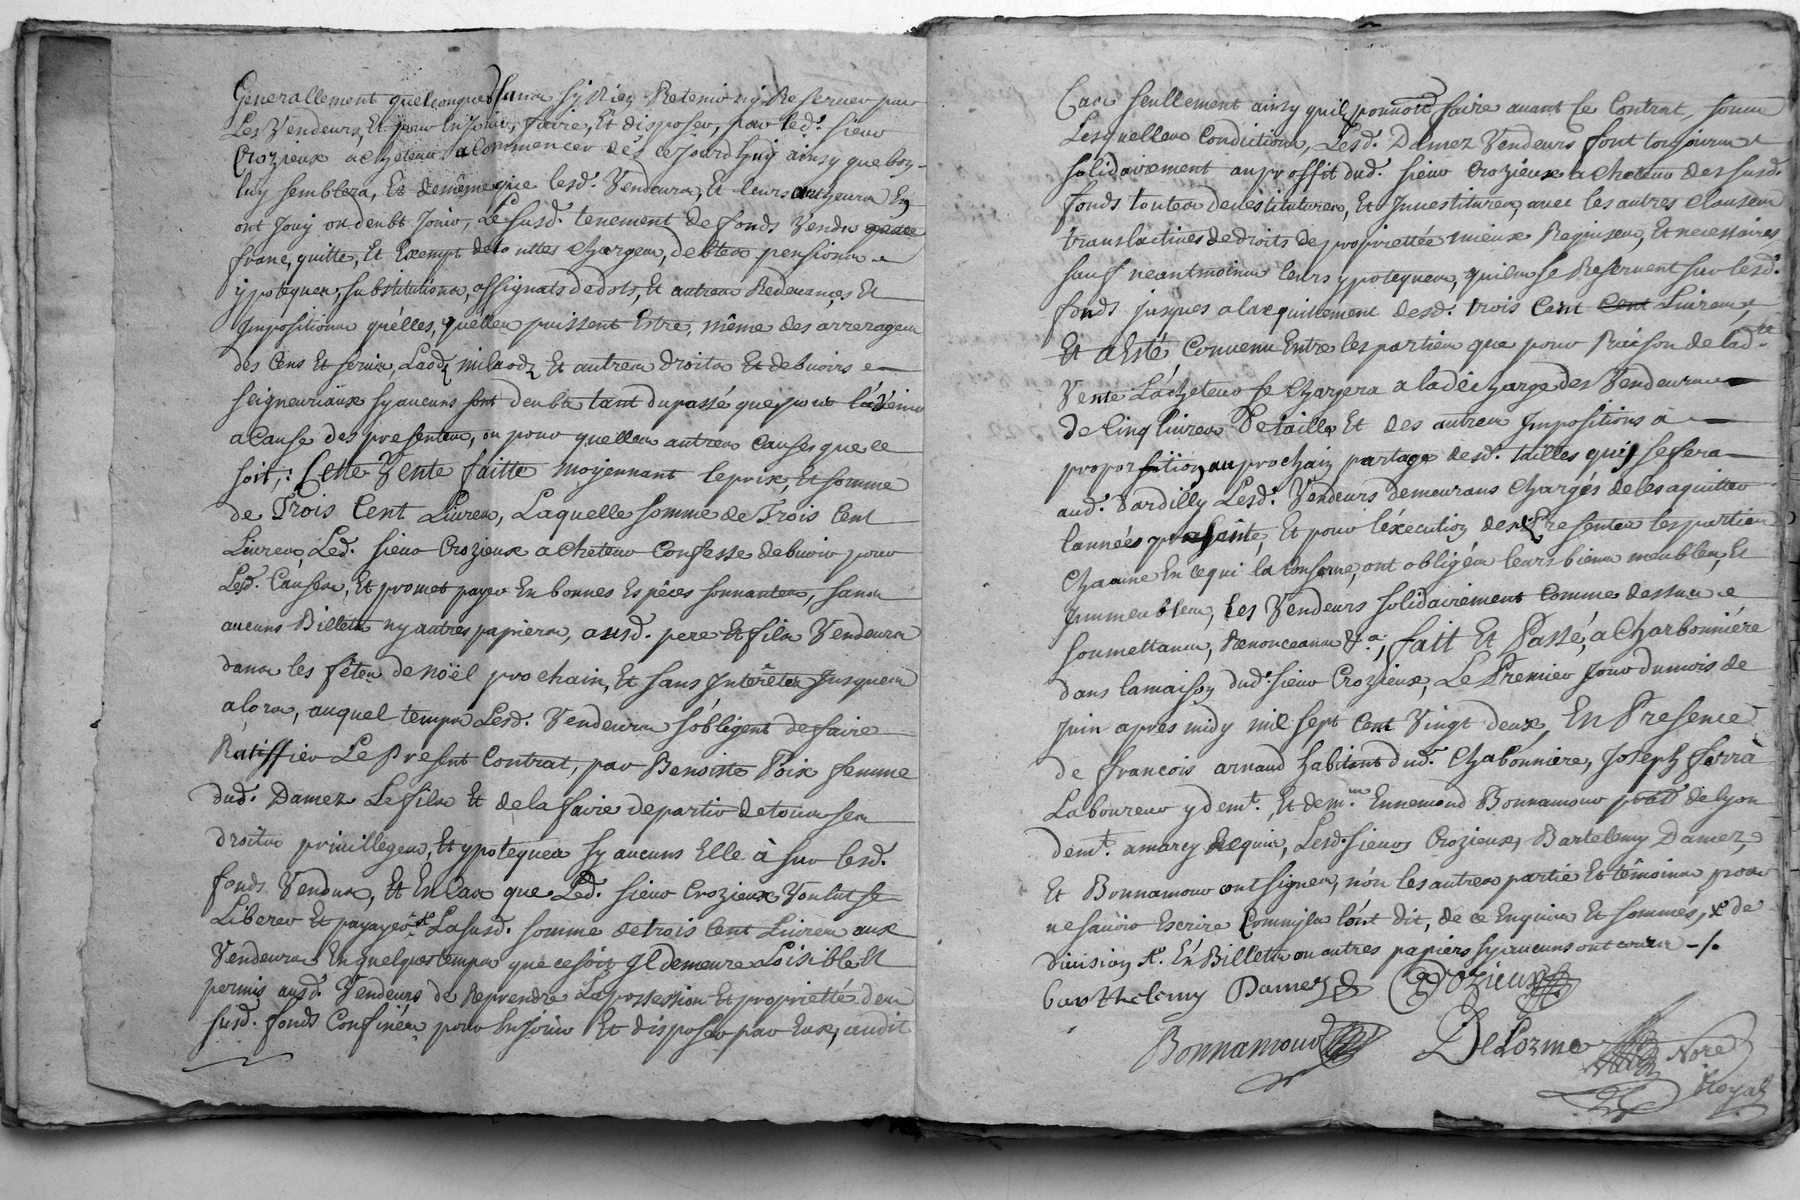 Generallement quelconques sans sy Rien Retenir ny Reserver par
Les Vendeurs, Et pour En jouir, faire, Et disposer, par led.t sieur
Crozieux acheteur a Commencer dès ce Jourd'huy ainsy que bon
luy semblera, Et demême que lesd.t Vendeurs, Et leurs autheurs En
ont Jouy ou deubt Jouir, Le susd.t tenement de fonds Vendu
franc, quitte, Et Exempt de touttes charges, debtes pensions
ypoteques, substitutions, assignats de dots, Et autres Redevances Et
Impositions quélles, quélles puissent Estre, même des arrerages
des Cens Et servis, Laodz milaodz Et autres droits Et debvoirs
seigneuriaux sy aucuns sont deubts tant du passé que pour l'advenir
a Cause des presentes, ou pour quelles autres Causes que ce
soit; Cette Vente faitte moyennant le prix, Et somme
de Trois Cent Livres, Laquelle somme de Trois Cent
Livres Led.t sieur Crozieux acheteur Confesse debvoir pour
Lesd.t Causes, Et promet payer En bonnes Espèces sonnantes, sans
aucuns Billets ny autres papiers, ausd.t pere Et fils Vendeurs
dans les fêtes de noël prochain, Et sans Interêtes Jusques
alors, auquel temps Lesd.t Vendeurs s'obligent de faire
Ratiffier Le Present Contrat, par Benoiste Poix femme
dud.t Damez Le fils Et de la faire departir de tous ses
droits privilleges, Et ypoteques sy aucuns Elle à sur lesd.t
fonds Vendus, Et En Cas que Led.t sieur Crozieux Voulut se
Liberer Et payer La susd.t somme de trois Cent Livres aux
Vendeurs En quelques temps que ce soit Il demeure Loisible Et
permis ausd.t Vendeurs de Reprendre La possession Et proprietté des
susd.t fonds Confinés pour En jouir Et disposer par Eux, audit
Cas seullement ainsy quils pouvoit faire avant le Contrat, sous
Lesquelles Conditions, Lesd.t Damez Vendeurs font toujours
solidairement au proffit dud.t sieur Crozieux acheteur des susd.t
fonds toutes devestitures, Et Investitures, avec les autres clauses
translactives de droits de propriettée mieux Requises, Et necessaires,
sauf neantmoins leurs ypoteques, quils se Reservent sur lesd.t
fonds jusques a lacquittement desd.t trois Cent Cent Livres,
Et a Esté Convenu Entre les parties que pour Raison de lad.te
Vente L'acheteur se chargera a la décharge des Vendeurs
de Cinq livres de taille Et des autres Impositions à
proportion au prochain partage desd.t tailles qui se fera
aud.t Dardilly Lesd.t Vendeurs demeurans chargés de les aquitter
lannées presente, Et pour l'éxecution des Presentes les parties
Chacune En ce qui la Conserne, ont obligés leurs biens meubles, Et
Immeubles, Les Vendeurs solidairement Comme dessus
soumettans, Renonceans &.a, fait Et Passé, a Charbonniére
dans la maison dud.t sieur Crozieux, Le Premier Jour du mois de
Juin apres midy mil sept Cent Vingt deux, En Presence
de françois arnaud habitant dud.t Chabonniere, Joseph farrà
Laboureur y dem.t, Et de m.re Ennemond Bonnamour prat. de lyon
dem.t a marcy Requis, Lesd.t sieurs Crozieux, Bartelemy Damez,
Et Bonnamour ont signes, nón les autres partie Et témoins pour
ne sçavoir Escrire Comm'ils lónt dit, de ce Enquis Et sommés,
division &. En Billets ou autres papiers sy aucuns ont cours -/.
barthelemy Damez Crozieux
Bonnamour DeLorme Nore
Royal